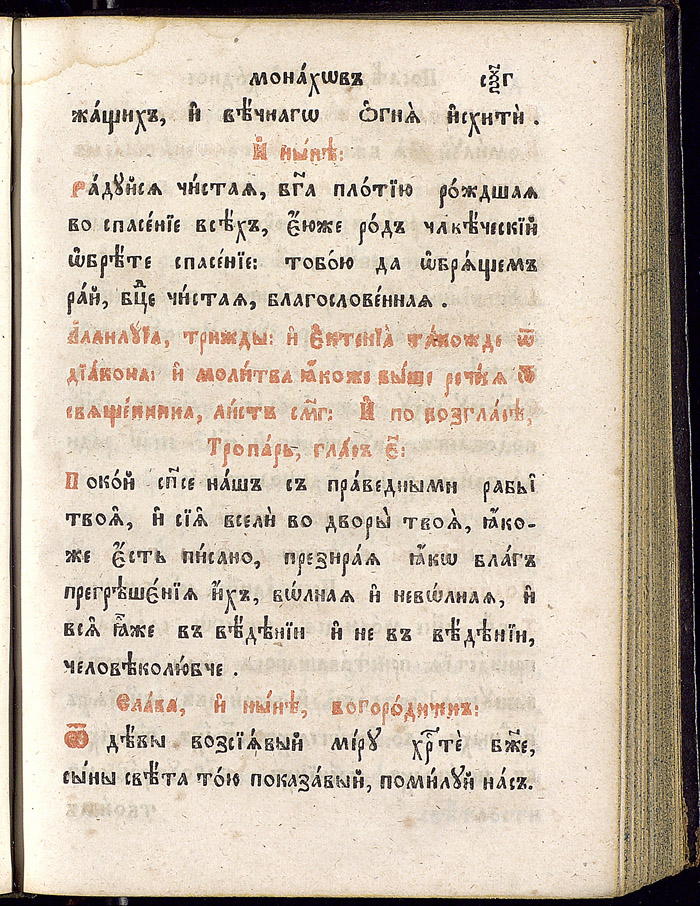 мона́хѡвъ сѯ҃г
жа́щихъ, и҆ вѣ́чнагѡ ѻ҆гнѧ̀ и҆схитѝ .
И҆ ны́нѣ:
Ра́дуйсѧ чи́стаѧ, бг҃а пло́тїю ро́ждшаѧ
во спасе́нїе всѣ́хъ, є҆́юже ро́дъ чл҃вѣ́ческїй
ѡ҆брѣ́те спасе́нїе: тобо́ю да ѡ҆брѧ́щемъ
ра́й, бц҃е чи́стаѧ, благослове́ннаѧ .
А҆ллилꙋ́їа, три́жды: и҆ Є҆ктенїѧ̀ та́кожде ѿ
дїа́кона: и҆ моли́тва ꙗ҆́коже вы́ше рече́нꙋю ѿ
свѧще́нника, ли́стъ см҃г: И҆ по возгла́сѣ,
Тропа́рь, гла́съ є҃:
Поко́й сп҃се на́шъ съ пра́ведными рабы̀
твоѧ̑, и҆ сїѧ̑ вселѝ во дворы̀ твоѧ̑, ꙗ҆́ко-
же є҆́сть пи́сано, презира́ѧ ꙗ҆́кѡ бла́гъ
прегрѣшє́нїѧ и҆́хъ, вѡ́лнаѧ и҆ невѡ́лнаѧ, и҆
всѧ̑ ꙗ҆̀же въ вѣ́дѣнїи и҆ не въ вѣ́дѣнїи,
человѣколю́бче .
Сла́ва, и҆ ны́нѣ, богоро́диченъ:
Ѿ дѣ́вы возсїѧ́вый мі́ру хрⷭ҇тѐ бж҃е,
сы́ны свѣ́та то́ю показа́вый, поми́лꙋй на́съ.